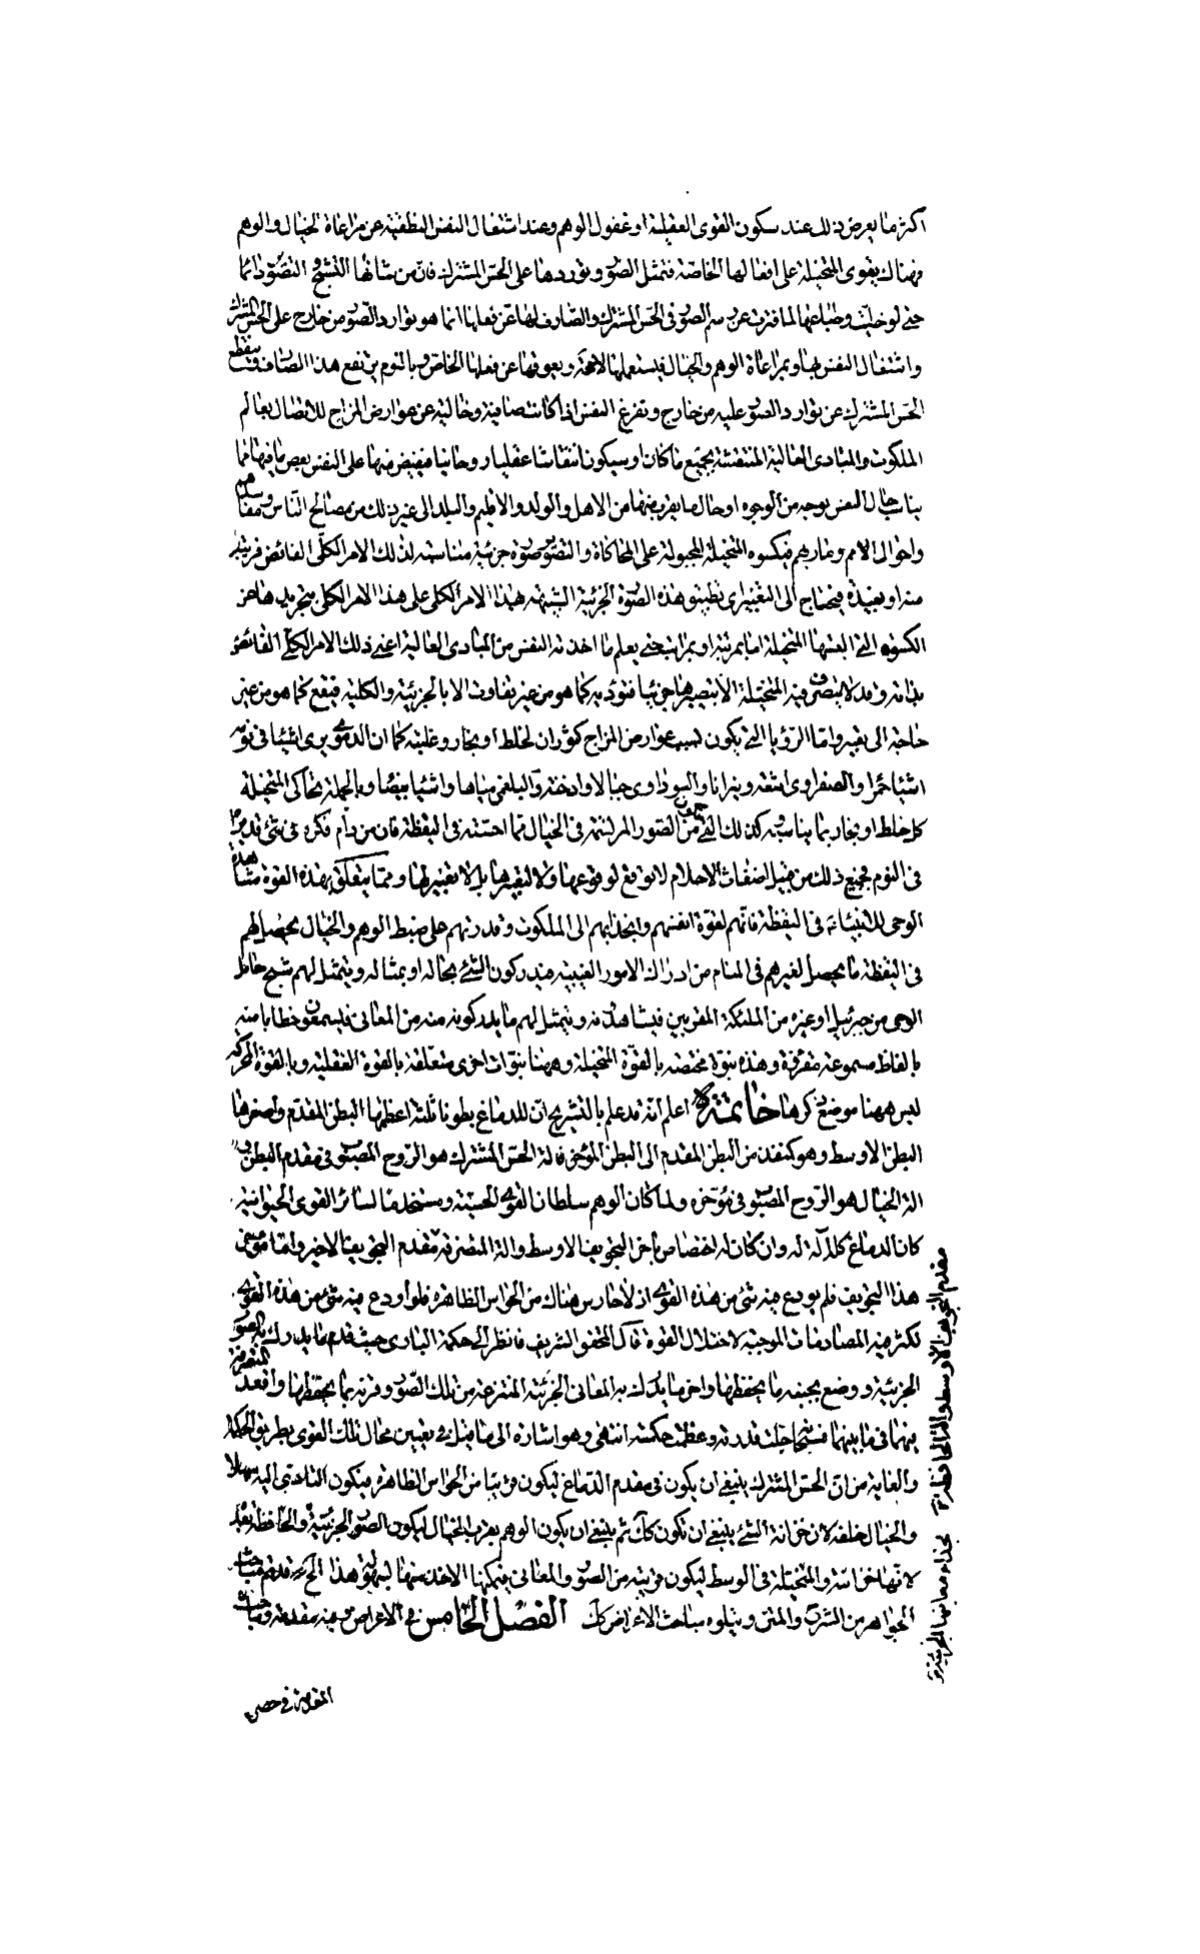 اكثر ما يعرض ذلك عند سكون القوى العقلية او غفول الوهم وعند اشتغال النفس النطقية عن مراعاة الخيال والوهم
فهناك يقوى المتخيلة على افعالها الخاصة فتمثل الصور وتوردها على الحس المشترك فان من شانها التشبح والتصور دائما
حتى لو خليت وطباعها لما فترت عن رسم الصور فى الحس المشترك والصارف لها عن فعلها انما هو توارد الصور من خارج على الحس المشترك
واشتغال النفس بها وبمراعاة الوهم والخيال فيستعملها لامحة ويعوقها عن فعلها الخاص وبالنوم يرتفع هذا الصارف فينقطع
الحس المشترك عن توارد الصور عليه من خارج وتفرغ النفس اذا كانت صافية وخالية عن عوارض المزاج للاتصال بعالم
الملكوت والمبادى العالية المنتقشة بجميع ما كان او سيكون انتقاشا عقليا روحانيا فيفيض منها على النفس بعض ما فيها مما
يناسب حال النفس بوجه من الوجوه او حال ما يقرب منها من الاهل والولد والاقليم والبلد الى غير ذلك من مصالح الناس ومفاسدهم
واحوال الامم فيكسوه المتخيلة المجبولة على المحاكاة والتصور صورة جزئية مناسبة لذلك الامر الكلى الفائض قريبة
منه او بعيدة فيحتاج الى التعبير اى تطبيق هذه الصورة الجزئية الشبيهة بهذا الامر الكلى على هذا الامر الكلى بتجريدها عن
الكسوة التى البستها المتخيلة اما بمرتبة او بمراتب حتى يعلم ما اخذته النفس من المبادى العالية اعنى ذلك الامر الكلى الفائض
بذاته وقد لا يتصرف فيه المتخيلة الا بتصييرها جزئيا فتؤديه كما هو من غير تفاوت الا بالجزئية والكلية فيقع كما هو من غير
حاجة الى تعبير واما الرؤيا التى يكون لسبب عوارض المزاج كثوران لخلط او بخار وغلبته كما ان الدموى يرى اشياء فى نومه
اشياء حمرا والصفراوى اشعة ونيرانا والسوداوى جبالا وادخنة والبلغمى مياها واشياء بيضا وبالجملة تحاكى المتخيلة
كل خلط او بخار بما يناسبه وكذلك التى من الصور المرتسمة فى الخيال مما احسته فى اليقظة فان من دام فكره فى شئ قد يراه
فى النوم فجميع ذلك من قبيل اضغاث الاحلام لا توقع لوقوعها ولا لتعبيرها بل لا تعبير لها ومما يتعلق بهذه القوة مشاهدة
الوحى للانبياء فى اليقظة فانهم لقوة انفسهم وانجذابهم الى الملكوت وقدرتهم على ضبط الوهم والخيال يحصل لهم
فى اليقظة ما يحصل لغيرهم فى المنام من ادراك الامور الغيبية فيدركون الشئ بحاله او بمثاله ويتمثل لهم شبح حامل
الوحى من جبرئيل او غيره من الملئكة المقربين فيشاهدونه ويتمثل لهم ما يدركونه منه من المعانى فيسمعون خطابا منه
بالفاظ مسموعة متفرقة وهذه نبوة مختصة بالقوة المتخيلة وههنا نبوات اخرى متعلقة بالقوة العقلية وبالقوة المحركة
ليس ههنا موضع ذكرها خاتمة اعلم انه قد علم بالتشريح ان للدماغ بطونا ثلثة اعظمها البطن المقدم واصغرها
البطن الاوسط وهو كمنفذ من البطن المقدم الى البطن المؤخر فالة الحس المشترك هو الروح المصبوب فى مقدم البطن
الة الخيال هو الروح المصبوب فى مؤخره ولما كان الوهم سلطان القوى الحسية ومستخدما لسائر القوى الحيوانية
كان الدماغ كله آلة له وان كان له اختصاص باخر التجويف الاوسط والة المتصرفة مقدم التجويف الاخير واما مؤخر
هذا التجويف فلم يودع فيه شئ من هذه القوى اذ لا حارس هناك من الحواس الظاهرة فلو اودع فيه شئ من هذه القوى
لكثر فيه المصادمات الموجبة لاختلال القوة قال المحقق الشريف فانظر الى حكمة البارى حيث قدم ما يدرك به الصور
الجزئية ووضع بجنبه ما يحفظها واخر ما يدرك به المعانى الجزئية المنتزعة من تلك الصور وقرنه بما يحفظها واقعد المتصرفة
بينهما فى ما بينهما فسبحان جلت قدرته وعظمت حكمته انتهى وهو اشارة الى ما قيل فى تعيين محال تلك القوى بطريق الحكمة
والغاية من ان الحس المشترك ينبغى ان يكون فى مقدم الدماغ ليكون قريبا من الحواس الظاهرة فيكون التادى اليه سهلا
والخيال خلفه لان خزانة الشئ ينبغى ان تكون كذلك ثم ينبغى ان يكون الوهم بقرب الخيال ليكون الصور الجزئية والحافظة بعده
لانها خزانته والمتخيلة فى الوسط ليكون قريبة من الصور والمعانى فيمكنها الاخذ منها بسهولة هذا آخر قد تم مباحث
الجواهر من الشرح والمتن ويتلوه مباحث الاعراض كذلك الفصل الخامس فى الاعراض وفيه مقدمة ومباحث
المقدمة فى حصر
مقدم التجويف الاوسط والة الحافظة
بحذاء معانيها الجزئية